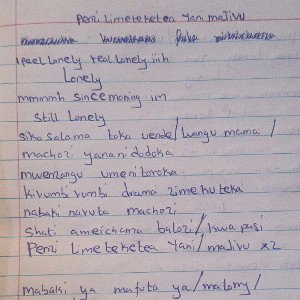 Penzi limeteketea yani majivu
I feel lonely real lonely iih
Lonely
mmmmh since morning im
still lonely
siko salama toka uende/wangu mama/
machozi yananidodoka
mwenzangu umenitoroka
kivumbi vumbi drama zimekuteka
nabaki navuta machozi
shati ameichama balozi/kwa pasi
Penzi limeteketea yani/majivu x2
mabaki ya mafuta ya/malorry/